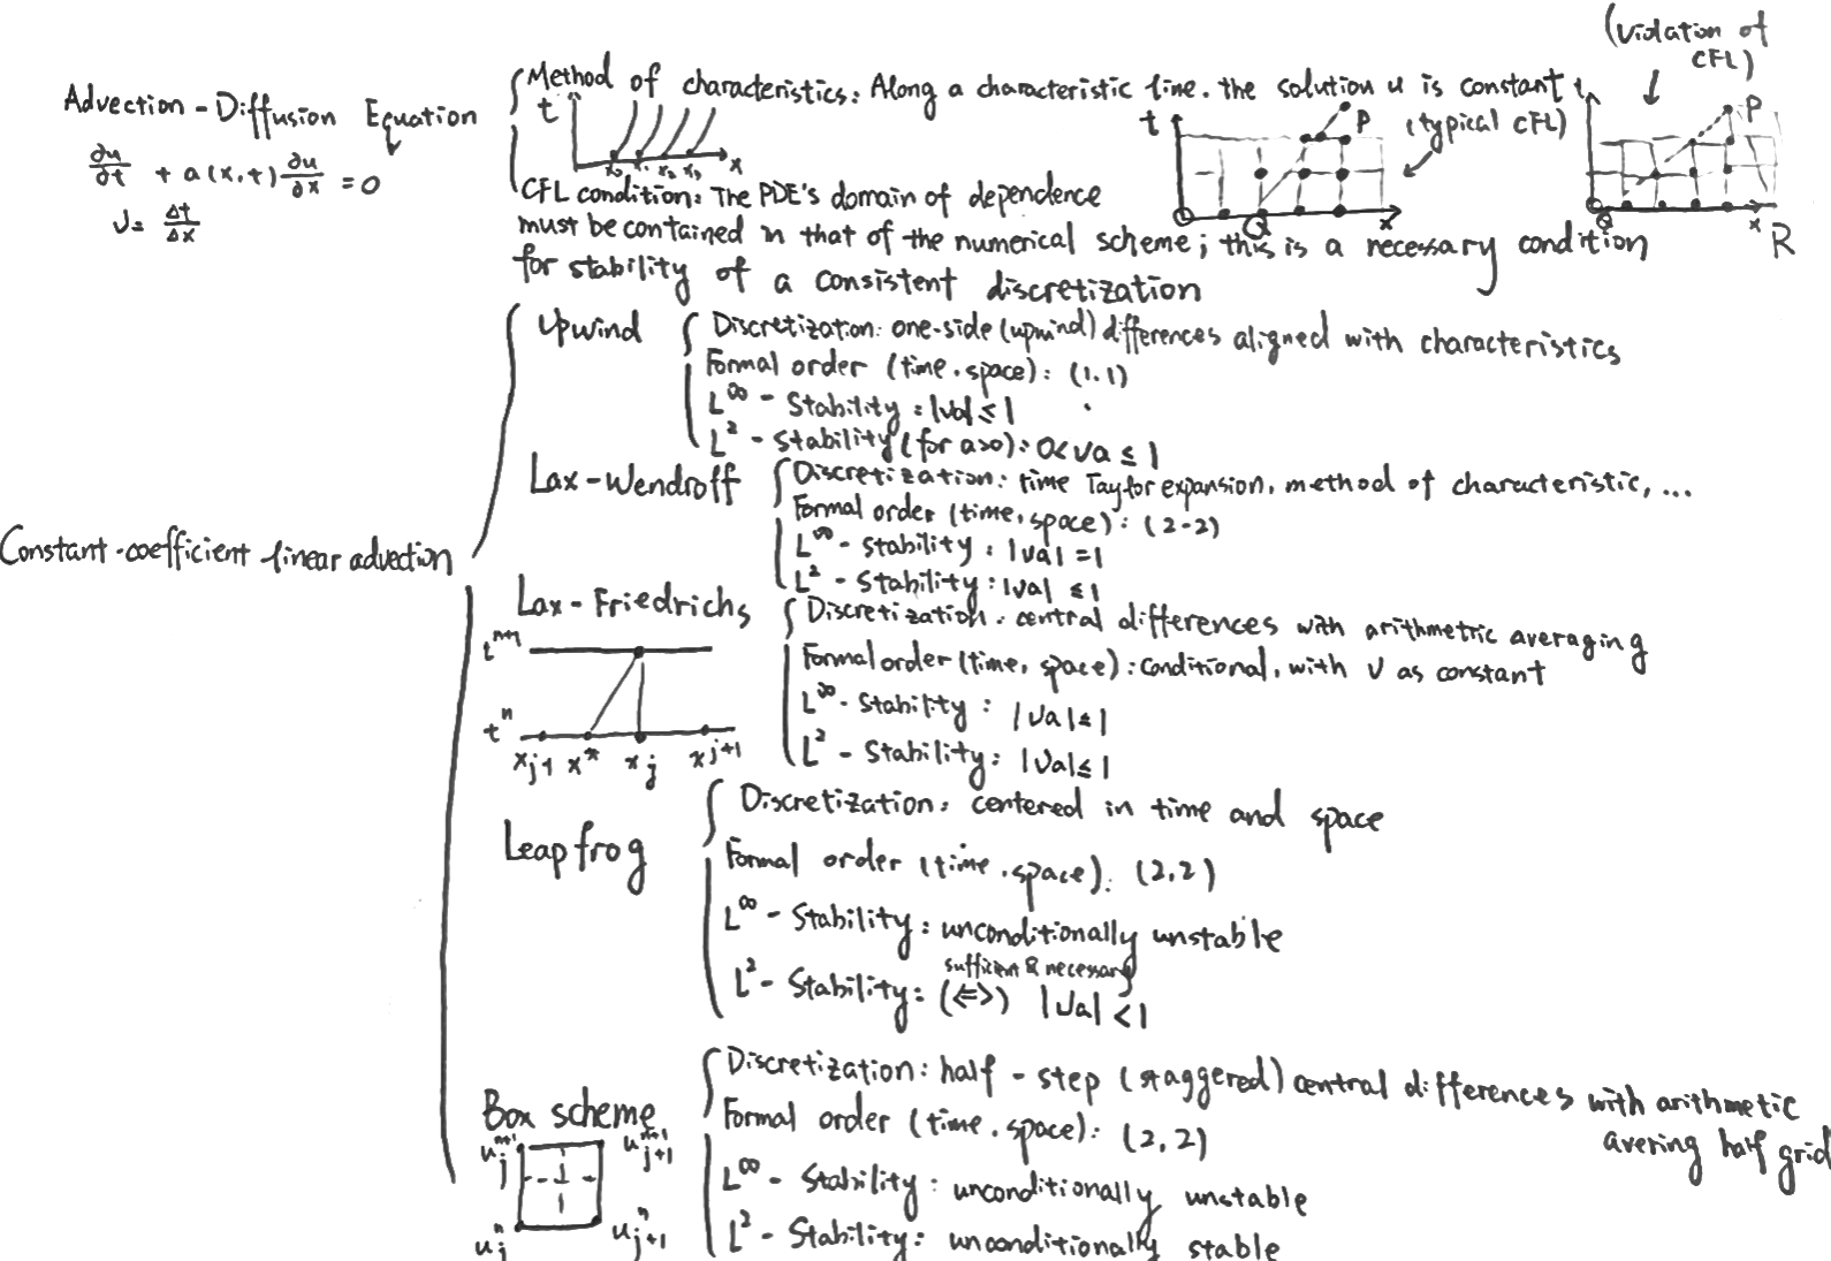 (Violation of
CFL)
Advection - Diffusion Equation
∂u/∂t + a(x,t) ∂u/∂x = 0
ν = Δt/Δx
Method of characteristics: Along a characteristic line. the solution u is constant
t
x₀ x₁ x₂ x₃ x
t P (typical CFL)
Q x
t P
Q x R
CFL condition: The PDE's domain of dependence
must be contained in that of the numerical scheme; this is a necessary condition
for stability of a consistent discretization
Constant-coefficient linear advection
Upwind
Discretization: one-side (upwind) differences aligned with characteristics
Formal order (time, space): (1,1)
L^∞ - Stability: |νa| ≤ 1
L² - Stability (for a>0): 0<νa ≤ 1
Lax-Wendroff
Discretization: time Taylor expansion, method of characteristic, ...
Formal order (time, space): (2-2)
L^∞ - Stability: |νa| = 1
L² - Stability: |νa| ≤ 1
Lax-Friedrichs
t^{n+1}
t^n
x_{j-1} x* x_j x^{j+1}
Discretization: central differences with arithmetric averaging
Formal order (time, space): conditional, with ν as constant
L^∞ - Stability: |νa| ≤ 1
L² - Stability: |νa| ≤ 1
Leapfrog
Discretization: centered in time and space
Formal order (time, space): (2,2)
L^∞ - Stability: unconditionally unstable
sufficient & necessary
L² - Stability: (<=>) |νa| < 1
Box scheme
u_j^{n+1} u_{j+1}^{n+1}
u_j^n u_{j+1}^n
Discretization: half - step (staggered) central differences with arithmetic
avering half grid
Formal order (time, space): (2,2)
L^∞ - Stability: unconditionally unstable
L² - Stability: unconditionally stable